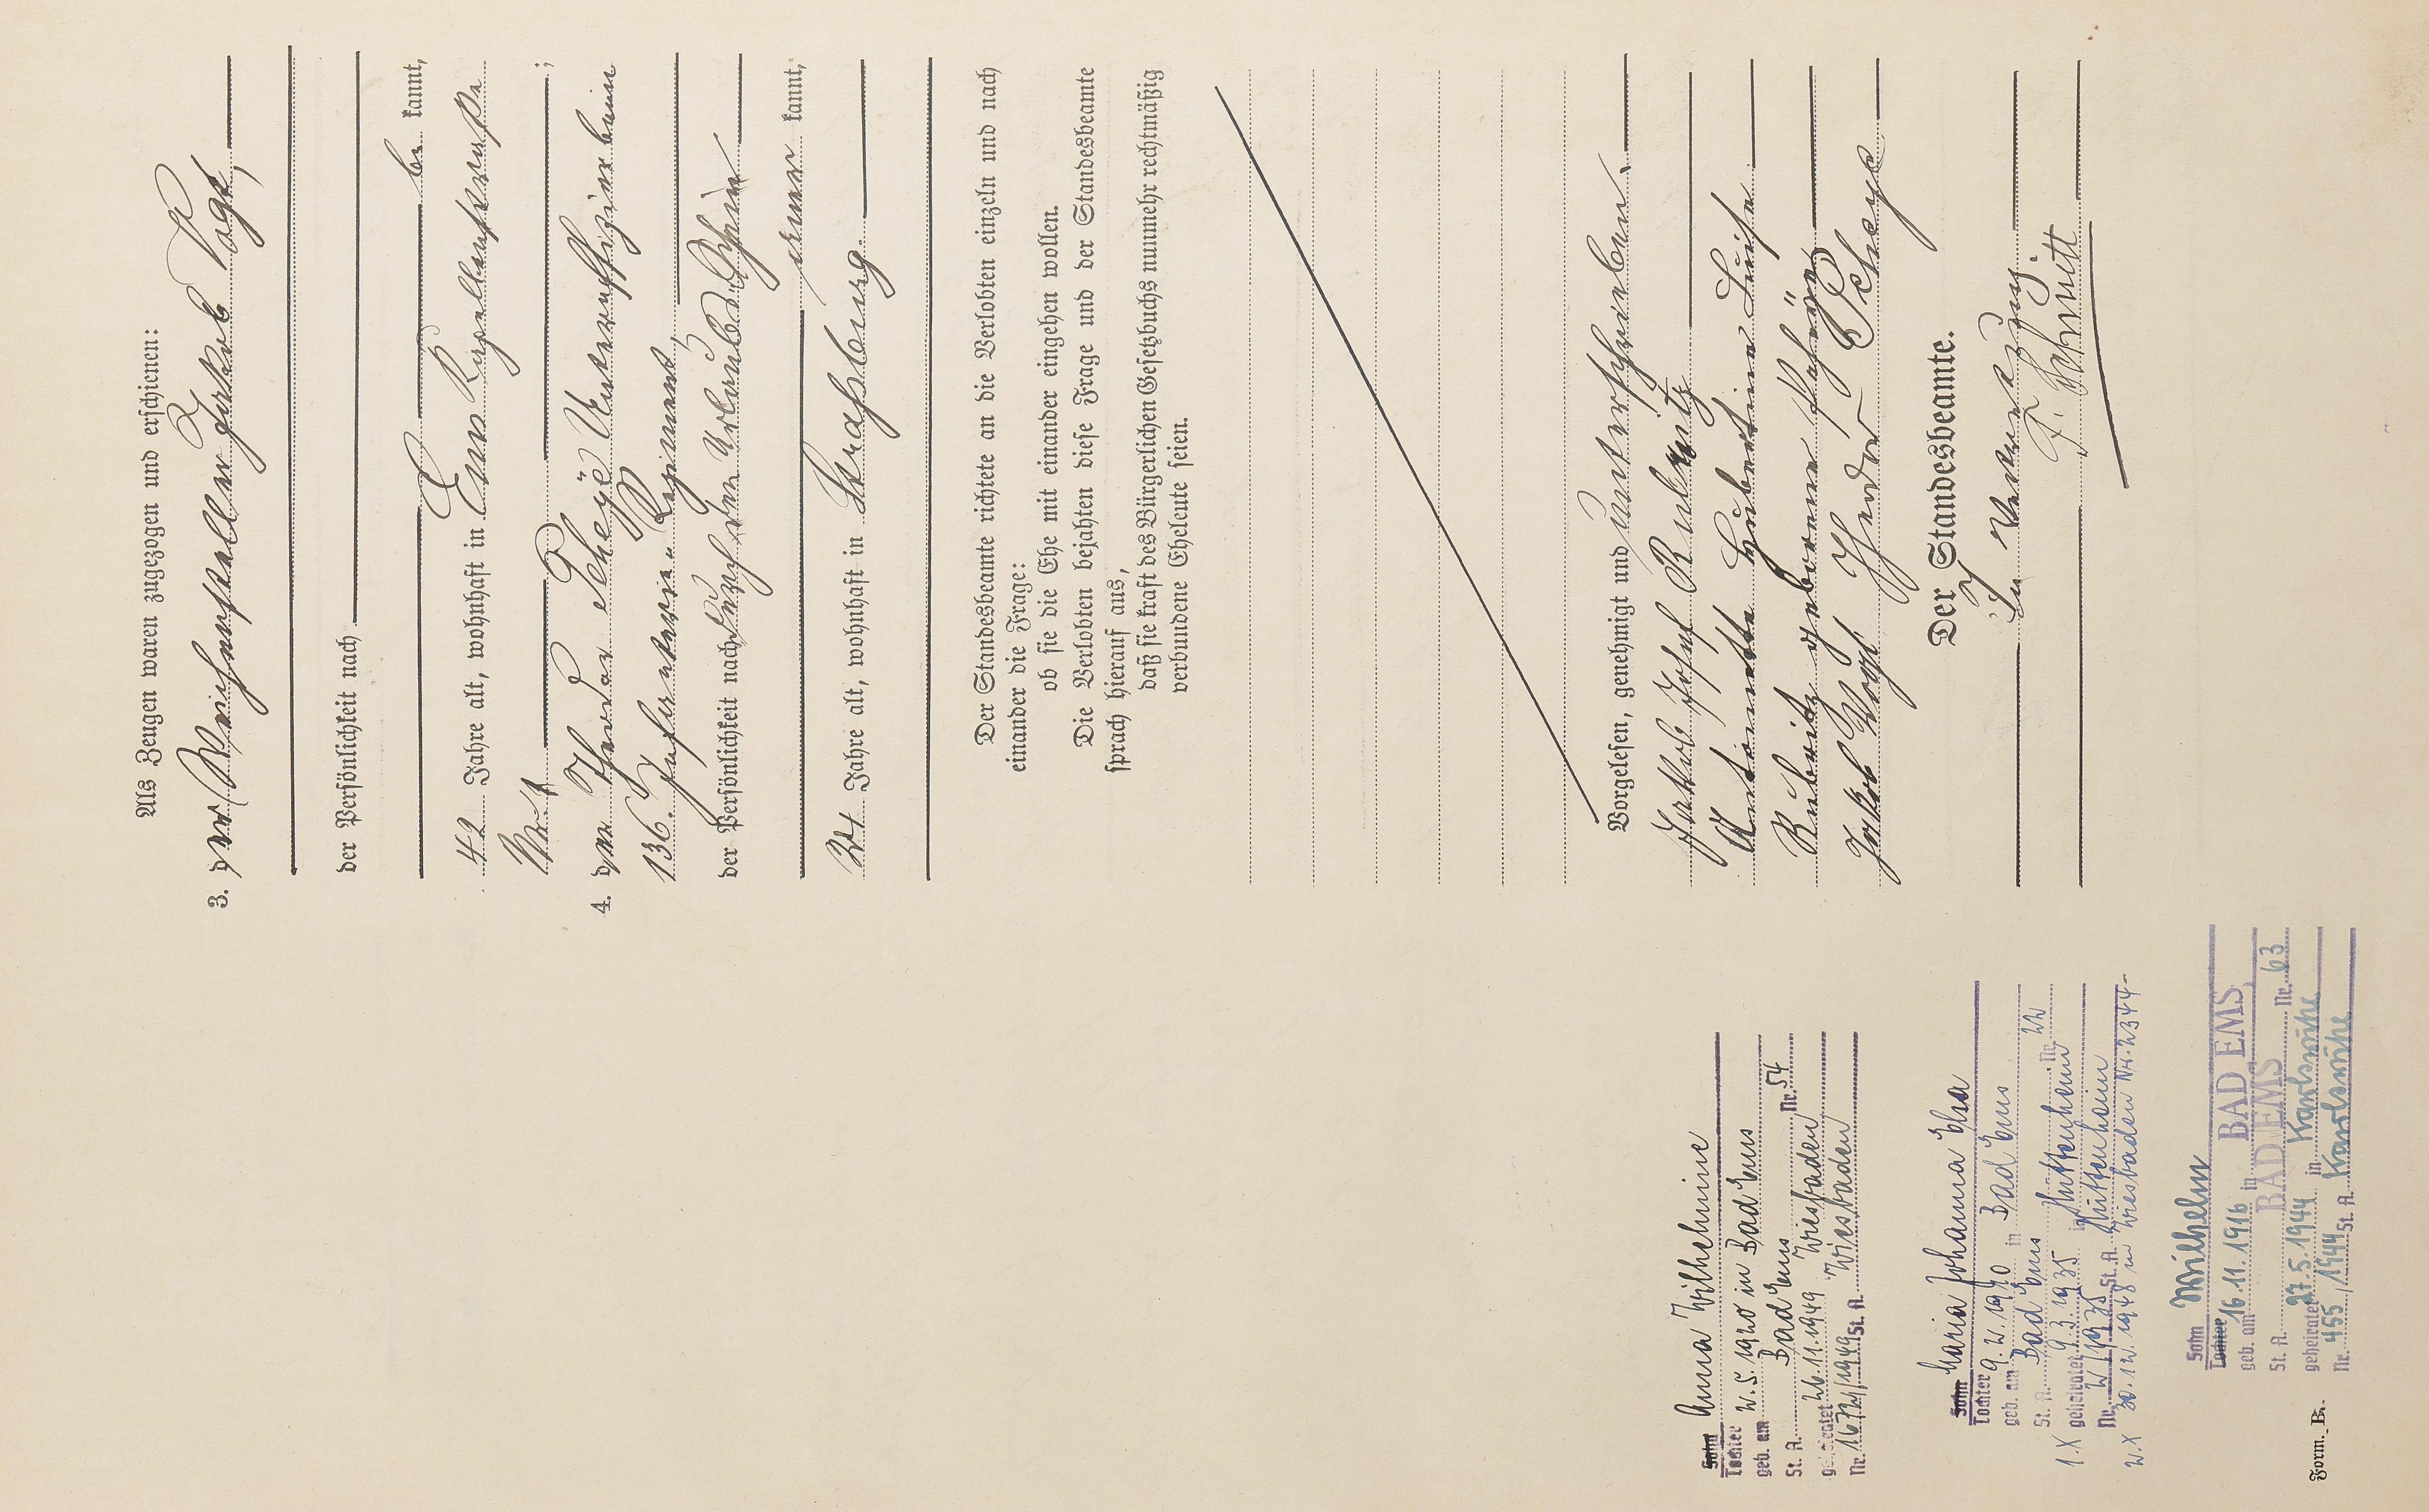 Als Zeugen waren zugezogen und erschienen:
3. der Weichensteller Jakob Vogt,
der Persönlichkeit nach
be kannt,
42 Jahre alt, wohnhaft in Ems Kapellenstraße
Nr. 1 ;
4. der Theodor Scheyë Unteroffizier beim
136. Infanterie-Regiment,
der Persönlichkeit nach durch den Urlaubsschein
aner kannt,
24 Jahre alt, wohnhaft in Straßburg.
Der Standesbeamte richtete an die Verlobten einzeln und nach
einander die Frage:
ob sie die Ehe mit einander eingehen wollen.
Die Verlobten bejahten diese Frage und der Standesbeamte
sprach hierauf aus,
daß sie kraft des Bürgerlichen Gesetzbuchs nunmehr rechtmäßig
verbundene Eheleute seien.
Vorgelesen, genehmigt und unterschrieben.
Jakob Josef Rubwitz
Antonette Hubertine Luise
Rubwitz geborene
Jakob Vogt Theodor Scheyë
Der Standesbeamte.
In Vertretung.
F. Schmitt
Sohn Anna Wilhelmine
Tochter
geb. am 2.5.1920 in Bad Ems
St. A. Bad Ems Nr. 54
geheiratet 26.11.1949 Wiesbaden
Nr. 1672/1949 St. A. Wiesbaden
Sohn Maria Johanna Elsa
Tochter
geb. am 9.2.1910 in Bad Ems
St. A. Bad Ems Nr. 22
1.X geheiratet 9.3.1935 in Huttenheim
Nr. 2/1935 St. A. Huttenheim
2.X 30.12.1948 in Wiesbaden Nr. 2344
Sohn Wilhelm
Tochter
geb. am 16.11.1916 in BAD EMS
St. A. BAD EMS Nr. 63
geheiratet 27.5.1944 in Karlsruhe
Nr. 455/1944 St. A. Karlsruhe
Form. B.